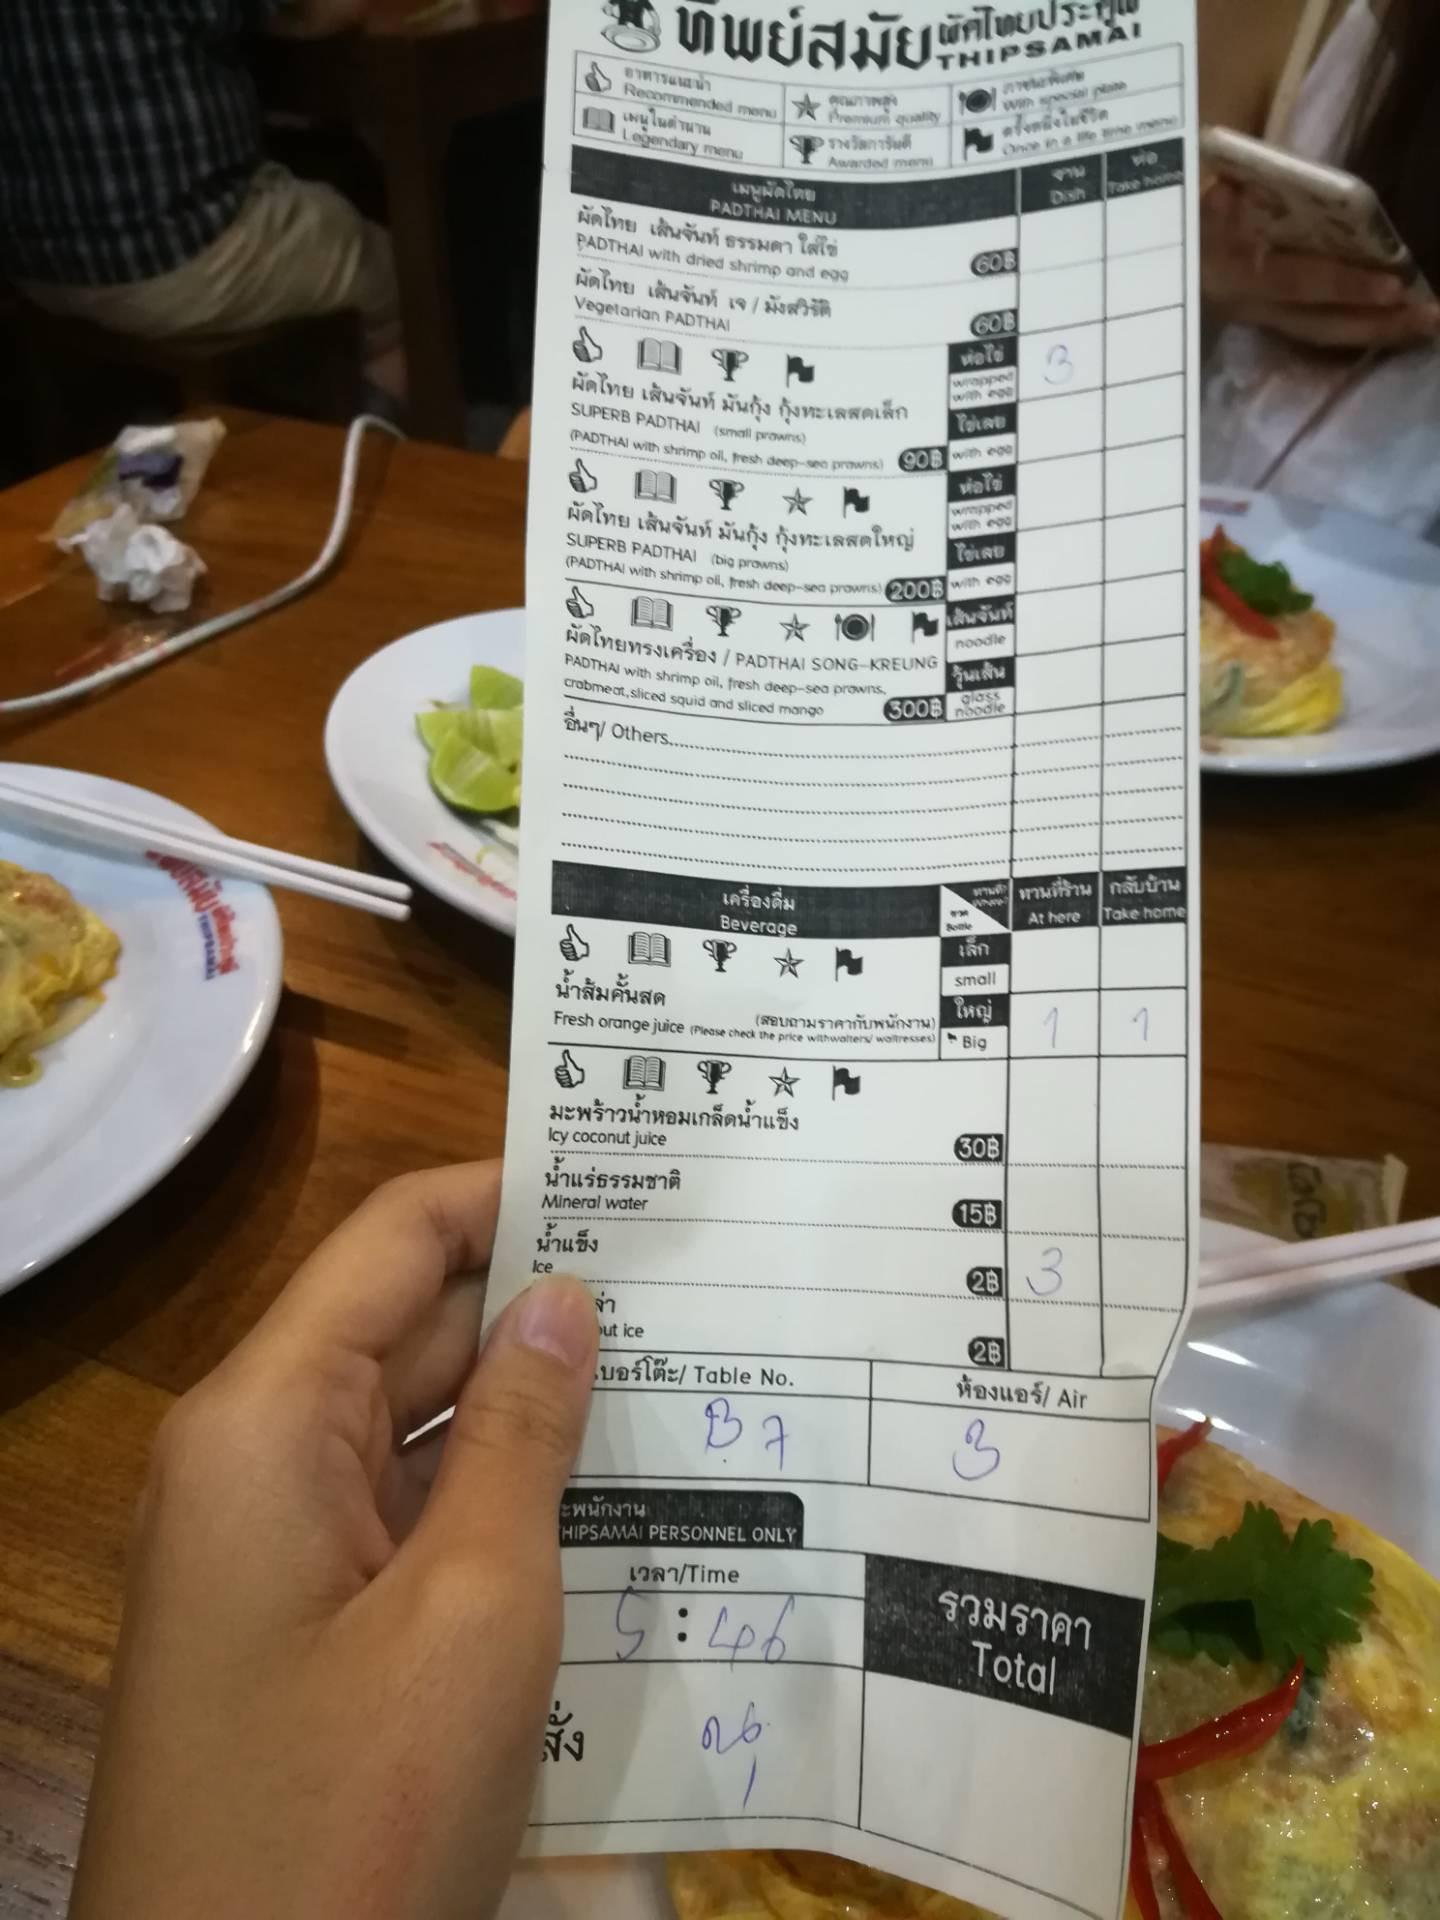 ทิพย์สมัย ผัดไทยประตูผี
THIPSAMAI
อาหารแนะนำ
Recommended menu
คุณภาพสูง
Premium quality
ภาชนะพิเศษ
With special plate
เมนูในตำนาน
Legendary menu
รางวัลการันตี
Awarded menu
ครั้งหนึ่งในชีวิต
Once in a life time menu
เมนูผัดไทย
PADTHAI MENU
จาน
Dish
ห่อ
Take home
ผัดไทย เส้นจันท์ ธรรมดา ใส่ไข่
PADTHAI with dried shrimp and egg 60฿
ผัดไทย เส้นจันท์ เจ / มังสวิรัติ
Vegetarian PADTHAI 60฿
ห่อไข่
wrapped
with egg
3
ผัดไทย เส้นจันท์ มันกุ้ง กุ้งทะเลสดเล็ก
SUPERB PADTHAI (small prawns)
(PADTHAI with shrimp oil, fresh deep-sea prawns) 90฿
ไข่เลย
with egg
ห่อไข่
wrapped
with egg
ผัดไทย เส้นจันท์ มันกุ้ง กุ้งทะเลสดใหญ่
SUPERB PADTHAI (big prawns)
(PADTHAI with shrimp oil, fresh deep-sea prawns) 200฿
ไข่เลย
with egg
เส้นจันท์
noodle
ผัดไทยทรงเครื่อง / PADTHAI SONG-KREUNG
PADTHAI with shrimp oil, fresh deep-sea prawns,
crabmeat, sliced squid and sliced mango 300฿
วุ้นเส้น
glass
noodle
อื่นๆ/ Others
เครื่องดื่ม
Beverage
ทานที่?
Where?
ขวด
Bottle
ทานที่ร้าน
At here
กลับบ้าน
Take home
เล็ก
small
น้ำส้มคั้นสด
(สอบถามราคากับพนักงาน)
Fresh orange juice (Please check the price withwaiters/ waitresses)
ใหญ่
Big
1 1
มะพร้าวน้ำหอมเกล็ดน้ำแข็ง
Icy coconut juice 30฿
น้ำแร่ธรรมชาติ
Mineral water 15฿
น้ำแข็ง
Ice 2฿ 3
ล่า
out ice 2฿
เบอร์โต๊ะ/ Table No.
ห้องแอร์/ Air
B7
3
ะพนักงาน
HIPSAMAI PERSONNEL ONLY
เวลา/Time
5:46
รวมราคา
Total
สั่ง
ทิพย์สมัย
THIPSAMAI